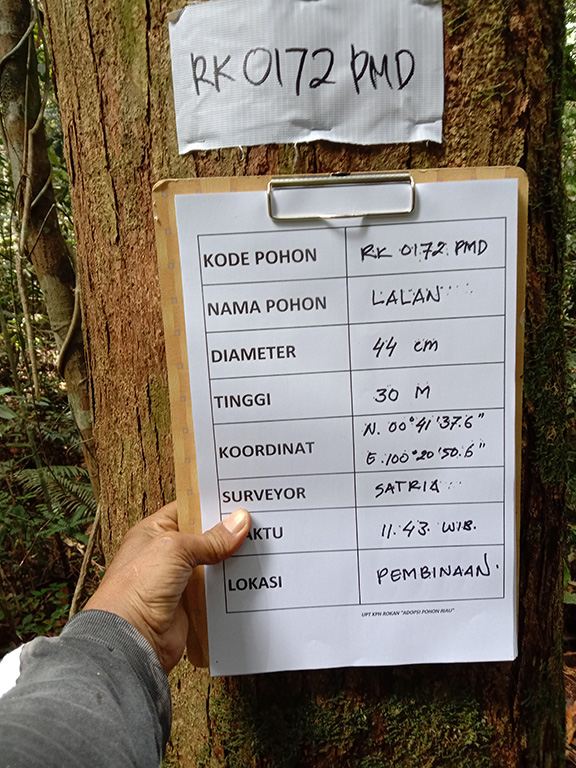 RK 0172 PMD
KODE POHON RK 0172 PMD
NAMA POHON LALAN
DIAMETER 44 cm
TINGGI 30 M
KOORDINAT N. 00°41'37.6"
E. 100°20'50.6"
SURVEYOR SATRIA
AKTU 11.43. WIB.
LOKASI PEMBINAAN.
UPT KPH ROKAN "ADOPSI POHON RIAU"